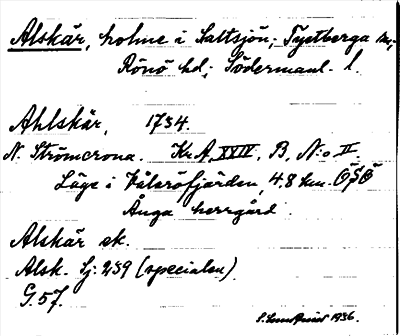 Alskär, holme i Saltsjön; Tystberga sn;
Rönö hd; Södermanl. l.
Ahlskär, 1734.
N. Strömcrona. Kr.A. XXIV. B, N:o II.
Läge i Tvären, 4.8 km. ÖSÖ
Ånga herrgård.
Alskär ek.
Alsk. Sj: 259 (specialen)
G. 57.
1936.